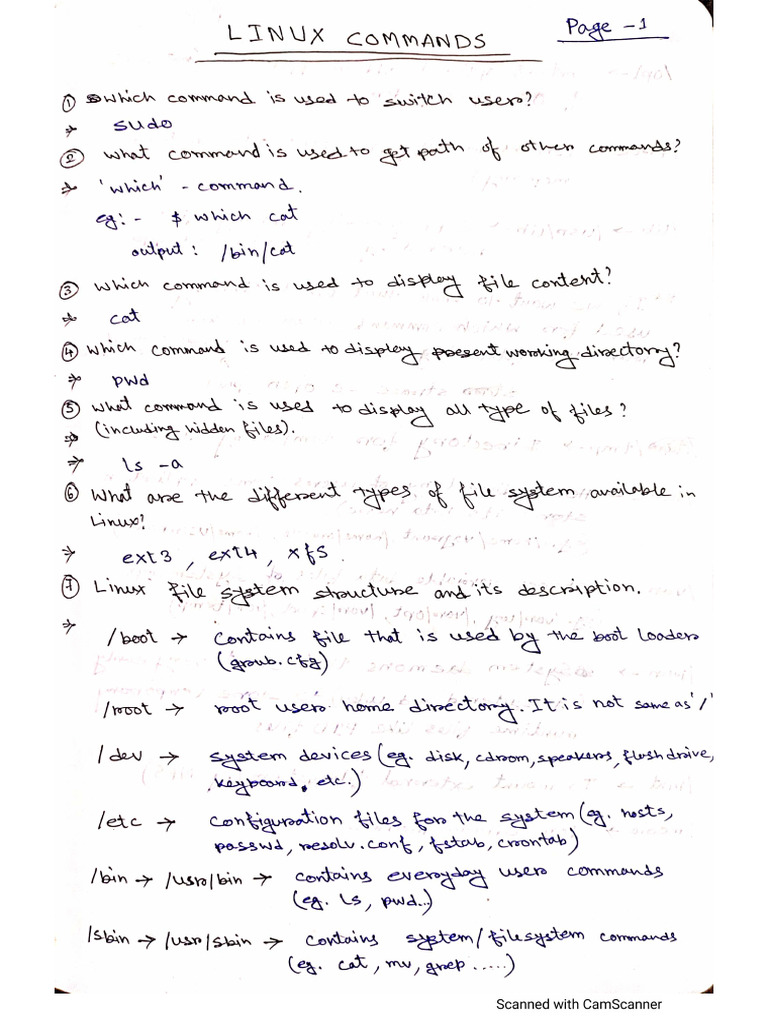 LINUX COMMANDS
Page -1
① Which command is used to switch user?
→ sudo
② What command is used to get path of other commands?
→ 'which' - command.
eg:- $ which cat
output: /bin/cat
③ Which command is used to display file content?
→ cat
④ Which command is used to display present working directory?
→ pwd
⑤ What command is used to display all type of files?
→ (including hidden files).
→ ls -a
⑥ What are the different types of file system available in
Linux?
→ ext3, ext4, xfs.
⑦ Linux file system structure and its description.
→
/boot → Contains file that is used by the boot loader
(grub.cfg)
/root → root user home directory. It is not same as '/'
/dev → system devices (eg. disk, cdrom, speakers, flash drive,
keyboard, etc.)
/etc → configuration files for the system (eg. hosts,
passwd, resolv.conf, fstab, crontab)
/bin → /usr/bin → contains everyday user commands
(eg. ls, pwd..)
/sbin → /usr/sbin → contains system/filesystem commands
(eg. cat, mv, grep .....)
Scanned with CamScanner